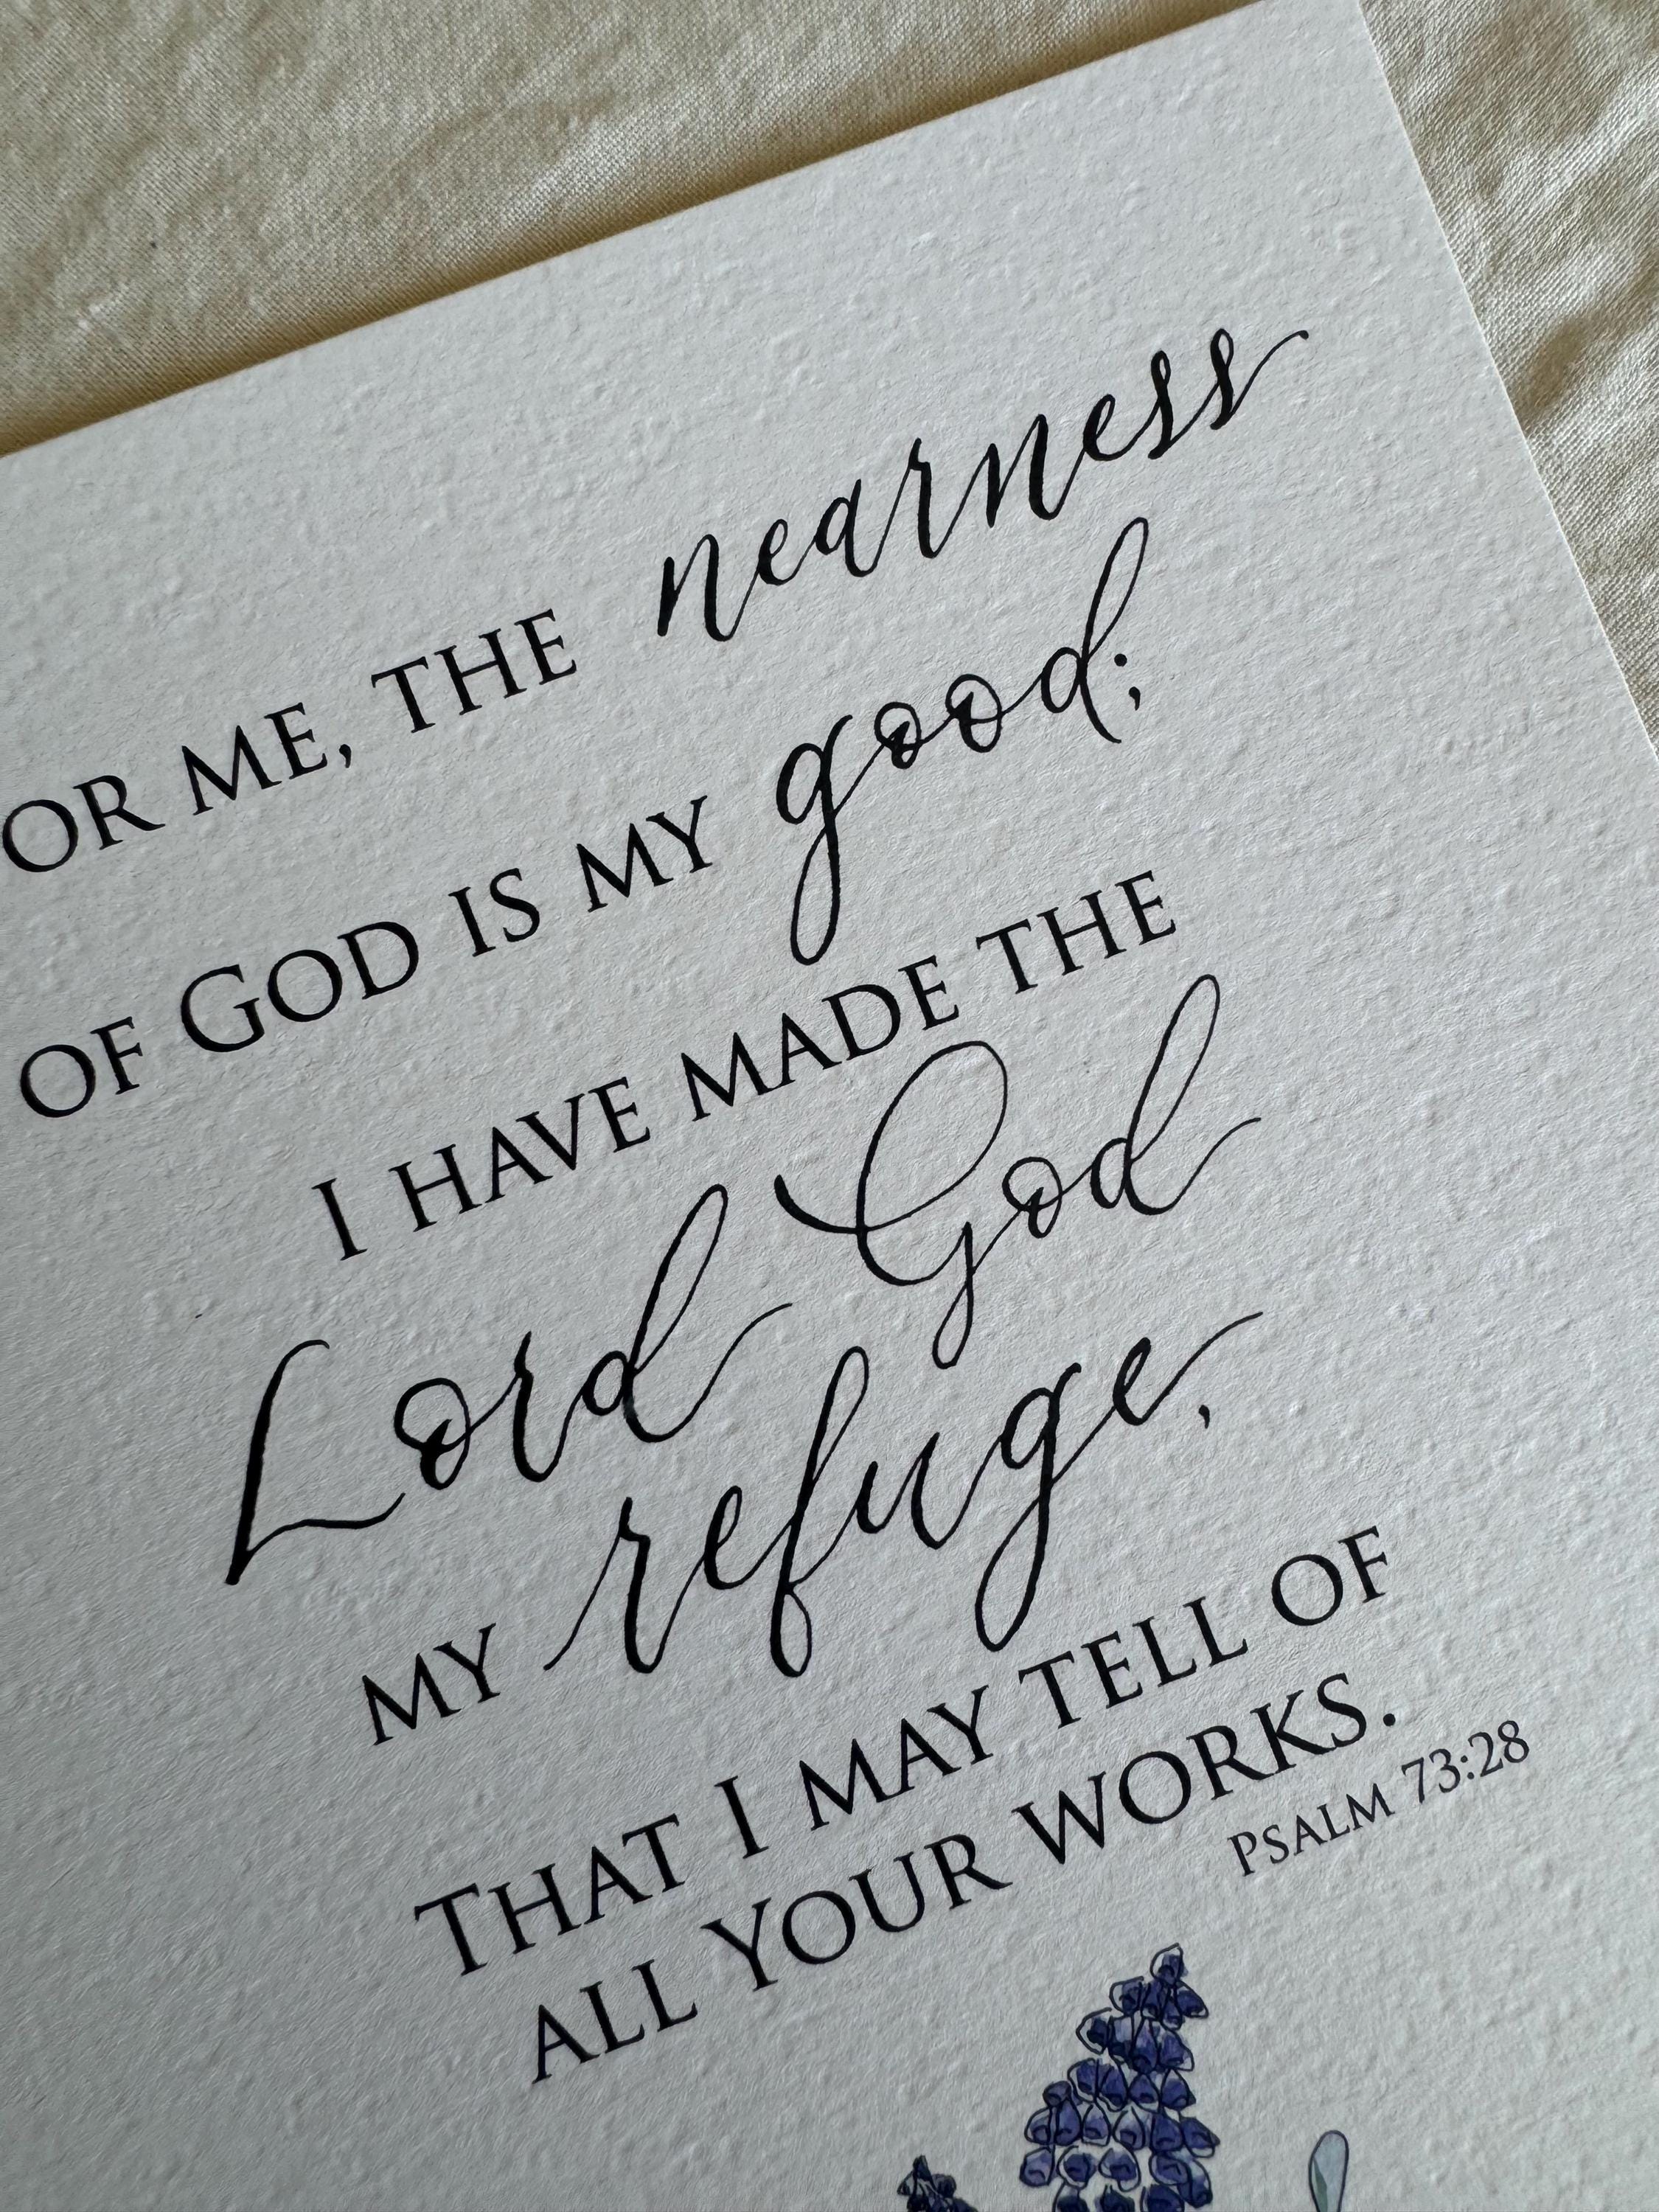 OR ME, THE nearness
OF GOD IS MY good;
I HAVE MADE THE
Lord God
MY refuge,
THAT I MAY TELL OF
ALL YOUR WORKS.
PSALM 73:28